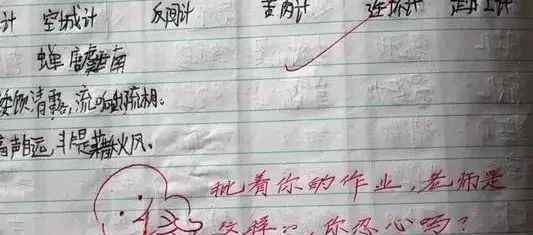 计 空城计 反间计 苦肉计 连环计 走为上计
蝉 虞世南
饮清露,流响出疏桐。
声自远,非是藉秋风。
批着你的作业,老师是
这样:,你忍心吗?